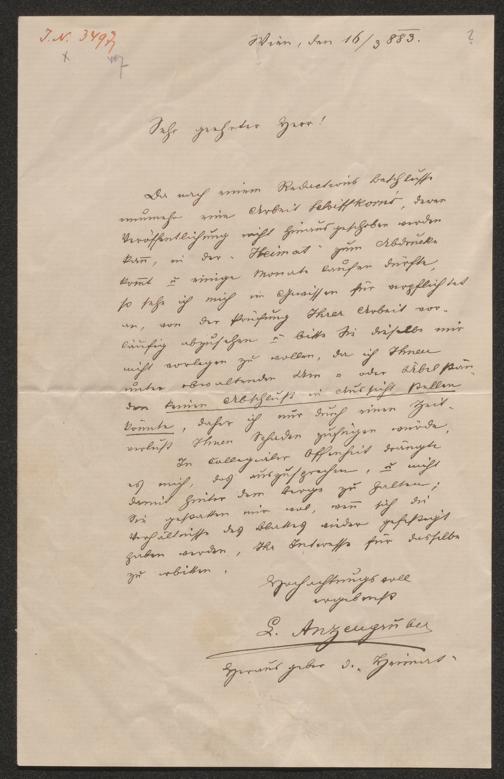 J.N. 3493
?
Wien, den 16/3 883.
Sehr geehrter Herr!
Da nach einem Redactions beschlusse
nunmehr eine Arbeit Schiffkorns, deren
Veröffentlichung nicht hinausgeschoben werden
kann, in der „Heimat“ zum Abdrucke
komt u einige Monate laufen dürfte,
so sehe ich mich im Gewissen für verpflichtet
an, von der Prüfung Ihrer Arbeit vor-
läufig abzusehen u bitte Sie dieselbe mir
nicht vorlegen zu wollen, da ich Ihnen
unter obwaltenden Um- oder Übelstän-
den keinen Abschluß in Aussicht stellen
könnte, daher ich nur durch einen Zeit-
verlust Ihnen Schaden zufügen würde.
In collegialer Offenheit drängte
es mich, das auszusprechen, u nicht
damit hinter dem Berge zu halten;
Sie gestatten mir wol, wenn sich die
Verhältnisse des Blattes wieder gefestigt
haben werden, Ihr Interesse für dasselbe
zu erbitten.
Hochachtungsvoll
ergebenst
L. Anzengruber
Herausgeber d. „Heimat“